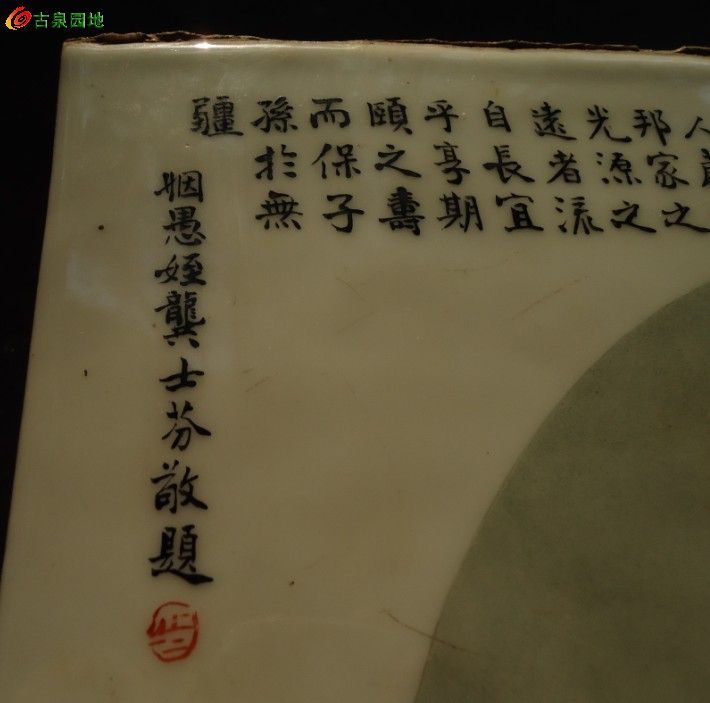 古泉园地
人
邦家之
光源之
遠者流
自長宜
乎享期
頤之壽
而保子
孫於無
疆
姻愚姪龔士芬敬題